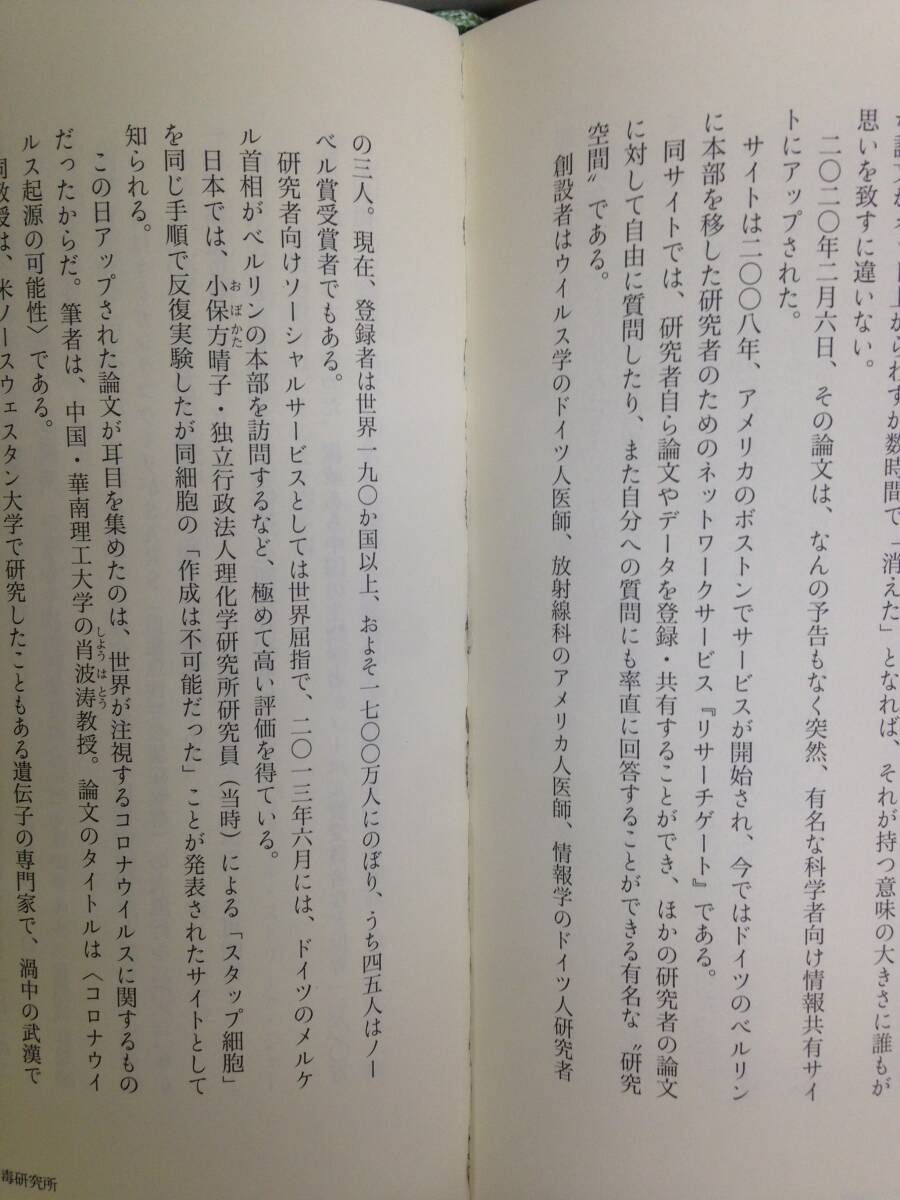 思いを致すに違いない。
二〇二〇年二月六日、その論文は、なんの予告もなく突然、有名な科学者向け情報共有サイ
トにアップされた。
サイトは二〇〇八年、アメリカのボストンでサービスが開始され、今ではドイツのベルリン
に本部を移した研究者のためのネットワークサービス『リサーチゲート』である。
同サイトでは、研究者自ら論文やデータを登録・共有することができ、ほかの研究者の論文
に対して自由に質問したり、また自分への質問にも率直に回答することができる有名な〝研究
空間〟である。
創設者はウイルス学のドイツ人医師、放射線科のアメリカ人医師、情報学のドイツ人研究者
の三人。現在、登録者は世界一九〇か国以上、およそ一七〇〇万人にのぼり、うち四五人はノー
ベル賞受賞者でもある。
研究者向けソーシャルサービスとしては世界屈指で、二〇一三年六月には、ドイツのメルケ
ル首相がベルリンの本部を訪問するなど、極めて高い評価を得ている。
日本では、小保方晴子・独立行政法人理化学研究所研究員（当時）による「スタップ細胞」
おぼかた
を同じ手順で反復実験したが同細胞の「作成は不可能だった」ことが発表されたサイトとして
知られる。
この日アップされた論文が耳目を集めたのは、世界が注視するコロナウイルスに関するもの
だったからだ。筆者は、中国・華南理工大学の肖波涛教授。論文のタイトルは〈コロナウイ
しようはとう
ルス起源の可能性〉である。
同教授は、米ノースウェスタン大学で研究したこともある遺伝子の専門家で、渦中の武漢で
毒研究所